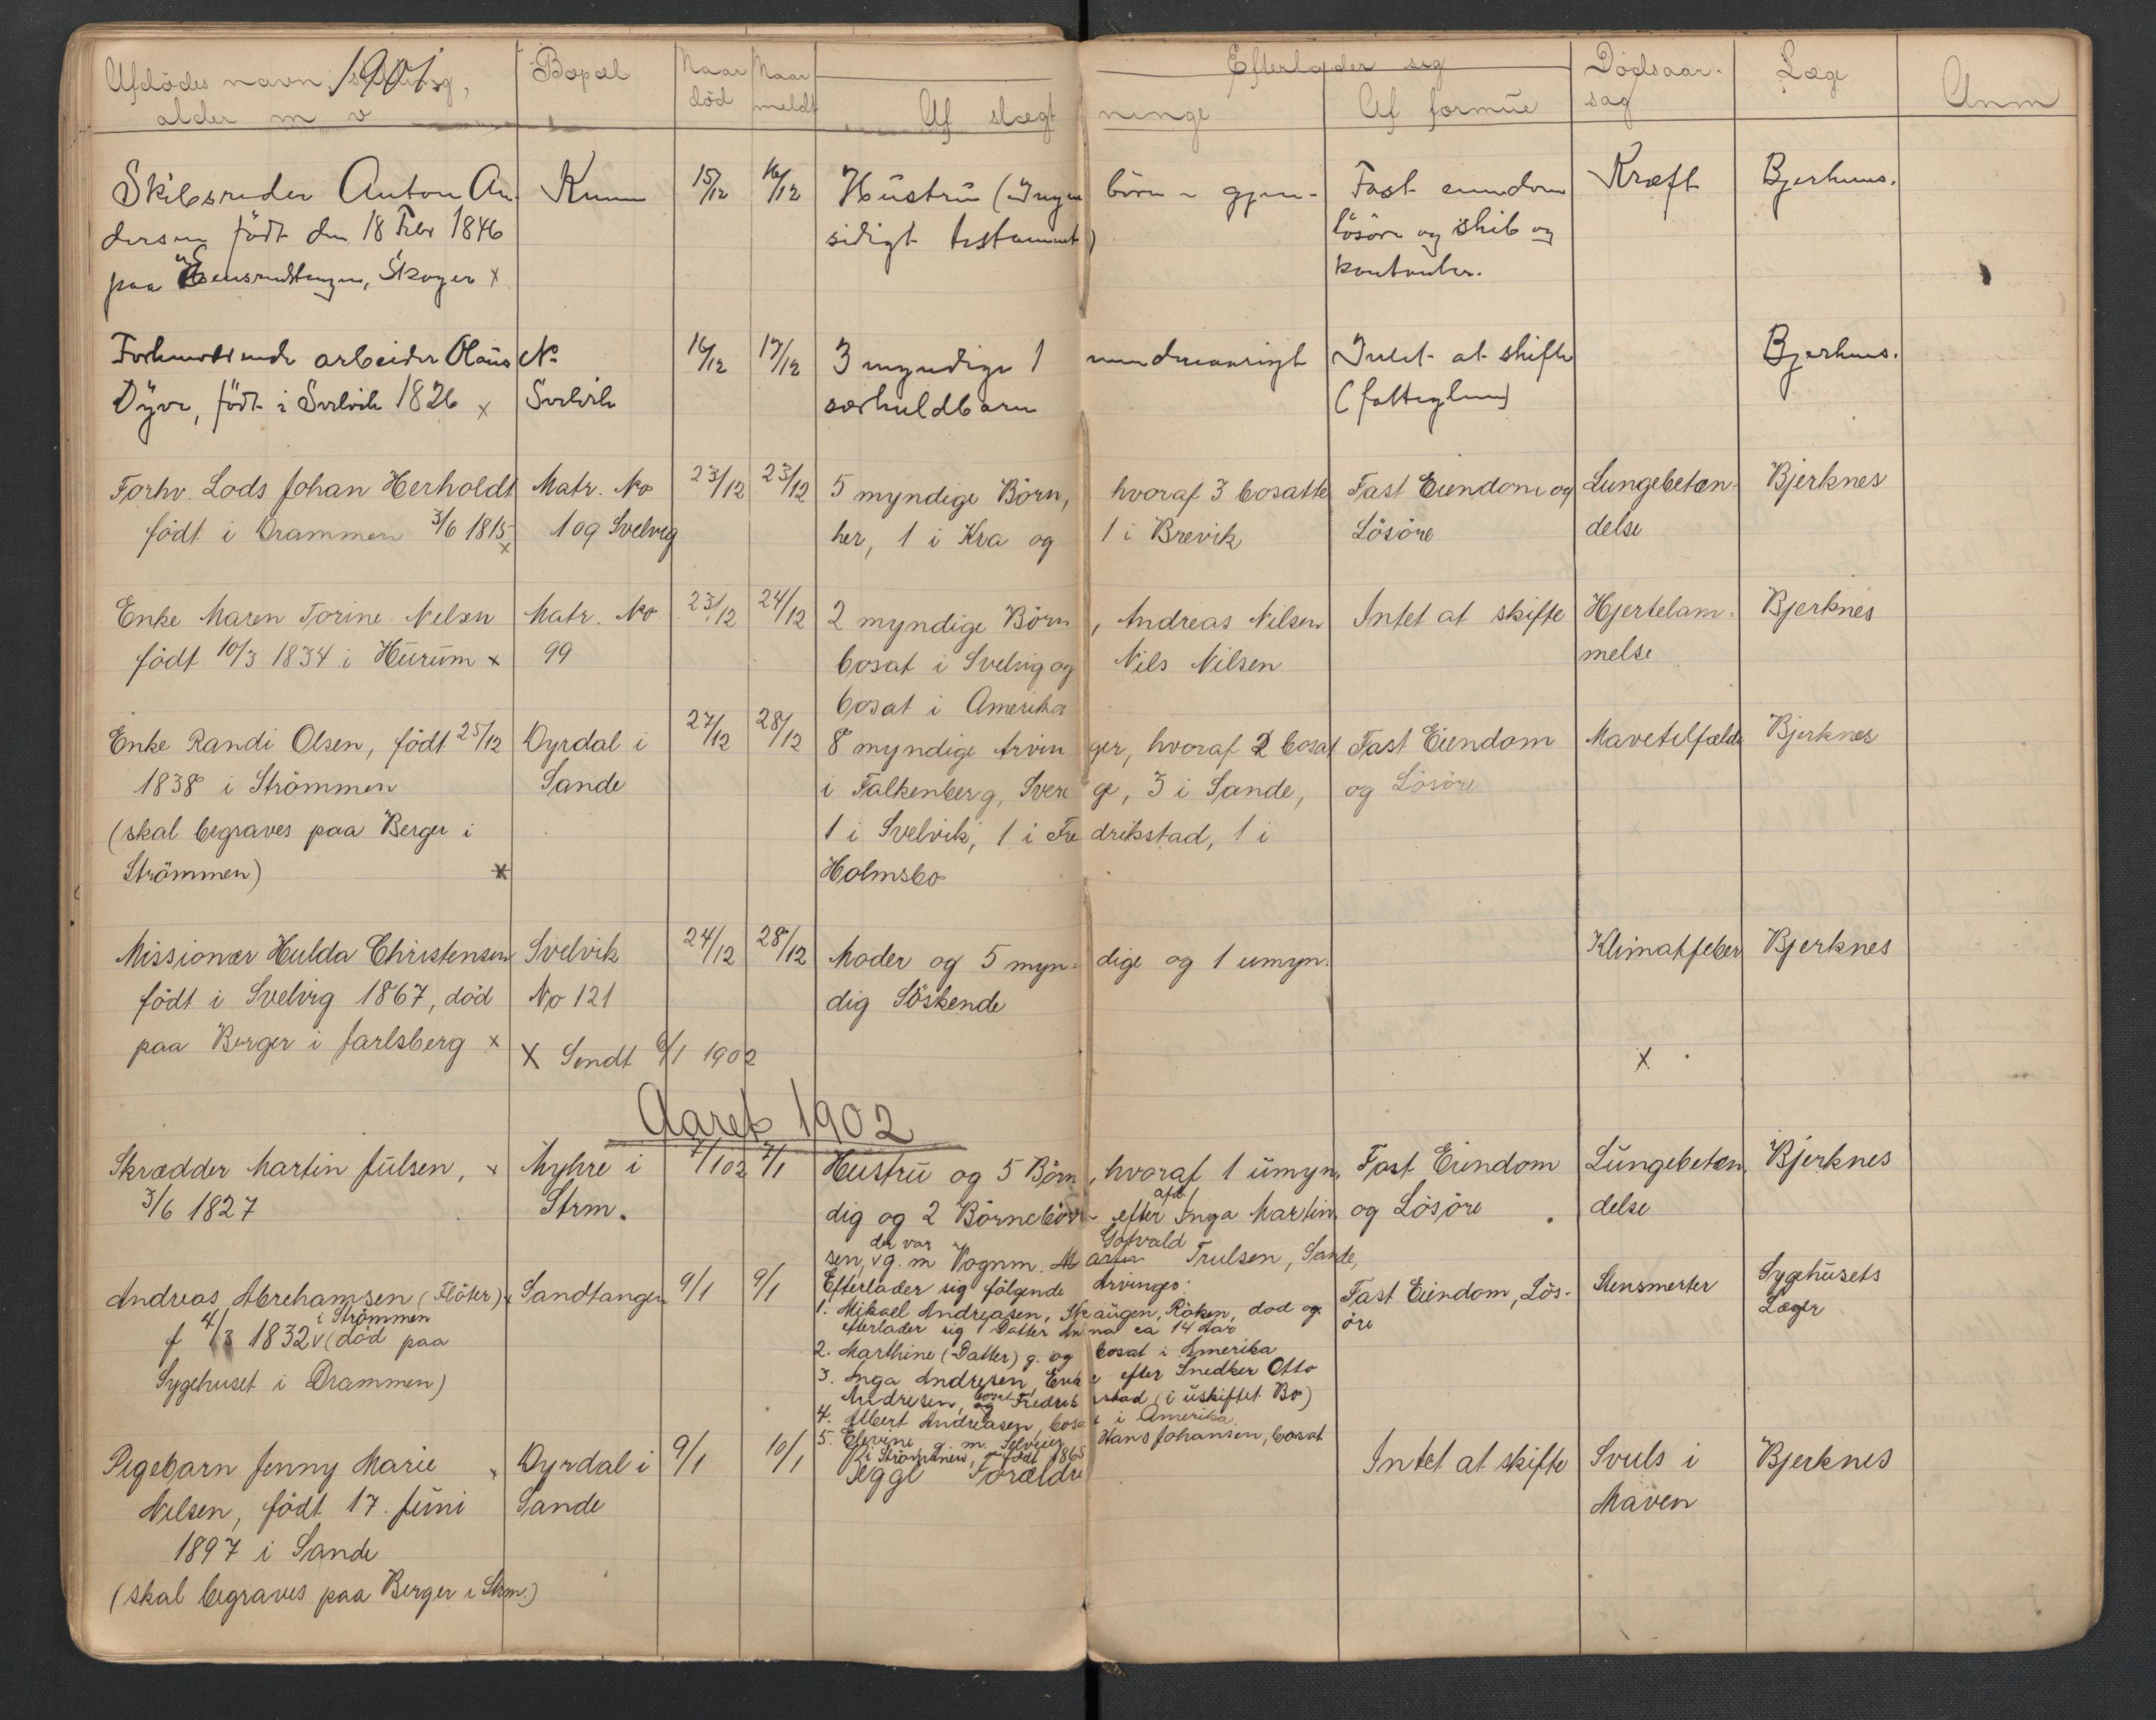 1901
Afdödes navn, stilling, alder m v
Bopæl
Naar död
Naar meldt
Efterlader sig
Af slægtninge
Af formue
Dødsaarsag
Læge
Anm
Skibsreder Anton An- Krum 15/12 16/12 Hüstrü (Ingen börn - gjen- Fast eiendom Kræft Bjerknes.
dersen födt den 18 Febr 1846 sidigt testament) lösöre og skib og
paa Skoger x kontanter.
Forhenværende arbeider Olaüs No 16/12 17/12 3 myndige 1 mindreaarigt Intet at skifte Bjerknes.
Dyve, födt i Svelvik 1826 x Svelvik særkuldbarn (fattiglem)
Forhv. Lods Johan Herholdt Matr. No 23/12 23/12 5 myndige Börn, hvoraf 3 bosatte Fast Eiendom og Lungebetæn- Bjerknes
födt i Drammen 3/6 1815 x 109 Svelvig her, 1 i Kra og 1 i Brevik Lösöre delse
Enke Maren Torine Nelsen Matr. No 23/12 24/12 2 myndige Börn, Andreas Nilsen Intet at skifte Hjertelam- Bjerknes
födt 10/3 1834 i Hürüm x 99 bosat i Svelvig og Nils Nilsen melse
bosat i Amerika
Enke Randi Olsen, födt 25/12 Dyrdal i 27/12 28/12 8 myndige Arvinger, hvoraf 2 bosat Fast Eiendom Mavetilfælde Bjerknes
1838 i Strömmen Sande i Falkenberg, Sverige, 3 i Sande, og Lösöre
(skal begraves paa Berger i 1 i Svelvik, 1 i Fredrikstad, 1 i
Strömmen) x Holmsbo
Missionær Hulda Christensen Svelvik 24/12 28/12 Moder og 5 myndige og 1 umyn- Klimatfeber Bjerknes
födt i Svelvig 1867, död No 121 dig Söskende
paa Berger i Jarlsberg x X Sendt 6/1 1902 X
Aaret 1902
Skrædder Martin Jülsen, x Myhre i 7/1 02 7/1 Hustrü og 5 Börn, hvoraf 1 ümyn- Fast Eiendom Lüngebetæn- Bjerknes
3/6 1827 Strm. dig og 2 Börnebörn efter afd. Inga Martin- og Lösöre delse
sen, der var g. m Vognm. Gotvald Trulsen, Sande,
Andreas Abrehamsen (Flöter) x Sandtangen 9/1 9/1 Efterlader sig fölgende Arvinge: Fast Eiendom, Lös- Stensmerter Sygehusets
f 4/3 1832 i Strömmen (död paa 1. Mikael Andreasen, Skaugen, Röken, död og öre Læger
efterlader sig 1 Datter Anna ca 14 Aar
Sygehuset i Drammen) 2. Marthine (Datter) g. og bosat i Amerika
3. Inga Andresen, Enke efter Snedker Otto
Andresen, bosat Fredrikstad (i üskiftet Bo)
4. Albert Andreasen, bosat i Amerika.
5. Elevine g. m. Selveier Hans Johansen, bosat
i Strömmen, födt 1865
Pigebarn Jenny Marie x Dyrdal i 9/1 10/1 Begge Forældre Intet at skifte Svuls i Bjerknes
Nilsen, födt 17. Jüni Sande Maven
1897 i Sande
(skal begraves paa Berger i Strm.)